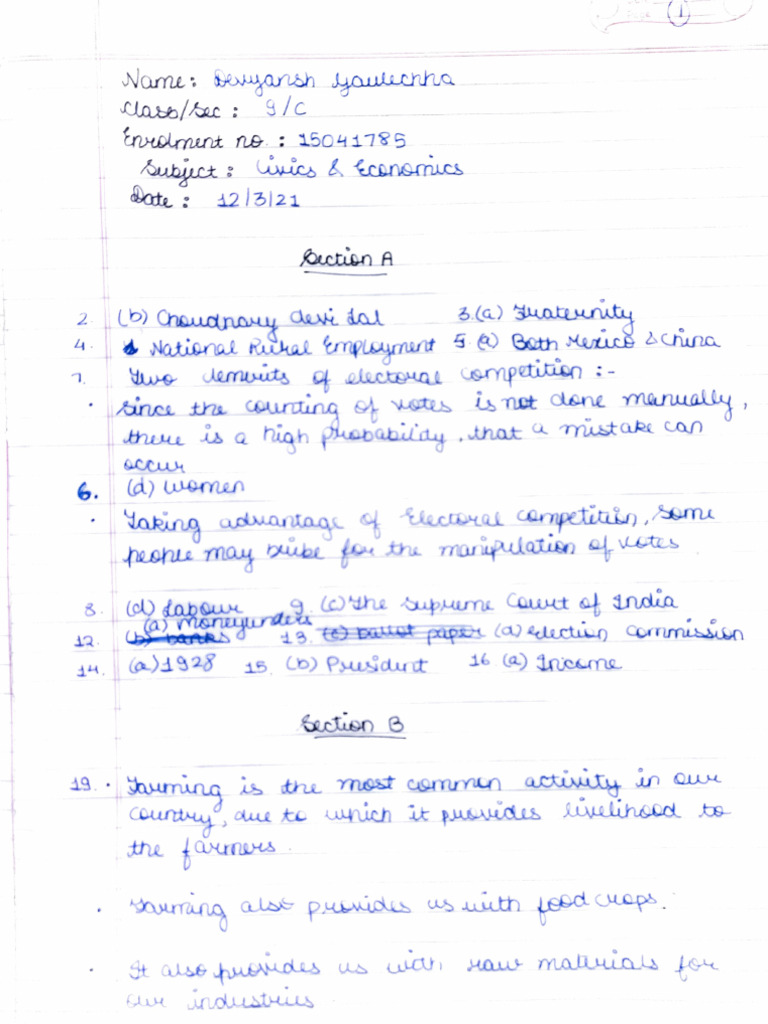 1
Name: Devyansh Gaulechha
Class/Sec : 9/C
Enrolment no. : 15041785
Subject : Civics & Economics
Date : 12/3/21
Section A
2. (b) Choudhary Devi Lal 3. (a) Fraternity
4. National Rural Employment 5. (a) Both Mexico & China
7. Two demerits of electoral competition :-
· Since the counting of votes is not done manually,
there is a high probability, that a mistake can
occur
6. (d) Women
· Taking advantage of Electoral competition, some
people may bribe for the manipulation of votes
8. (d) Labour 9. (c) The Supreme Court of India
(a) Moneylenders
12. (b) banks 13. (c) Ballot paper (d) Election commission
14. (a) 1928 15. (b) President 16. (a) Income
Section B
19. · Farming is the most common activity in our
country, due to which it provides livelihood to
the farmers.
· Farming also provides us with food crops.
· It also provides us with raw materials for
our industries